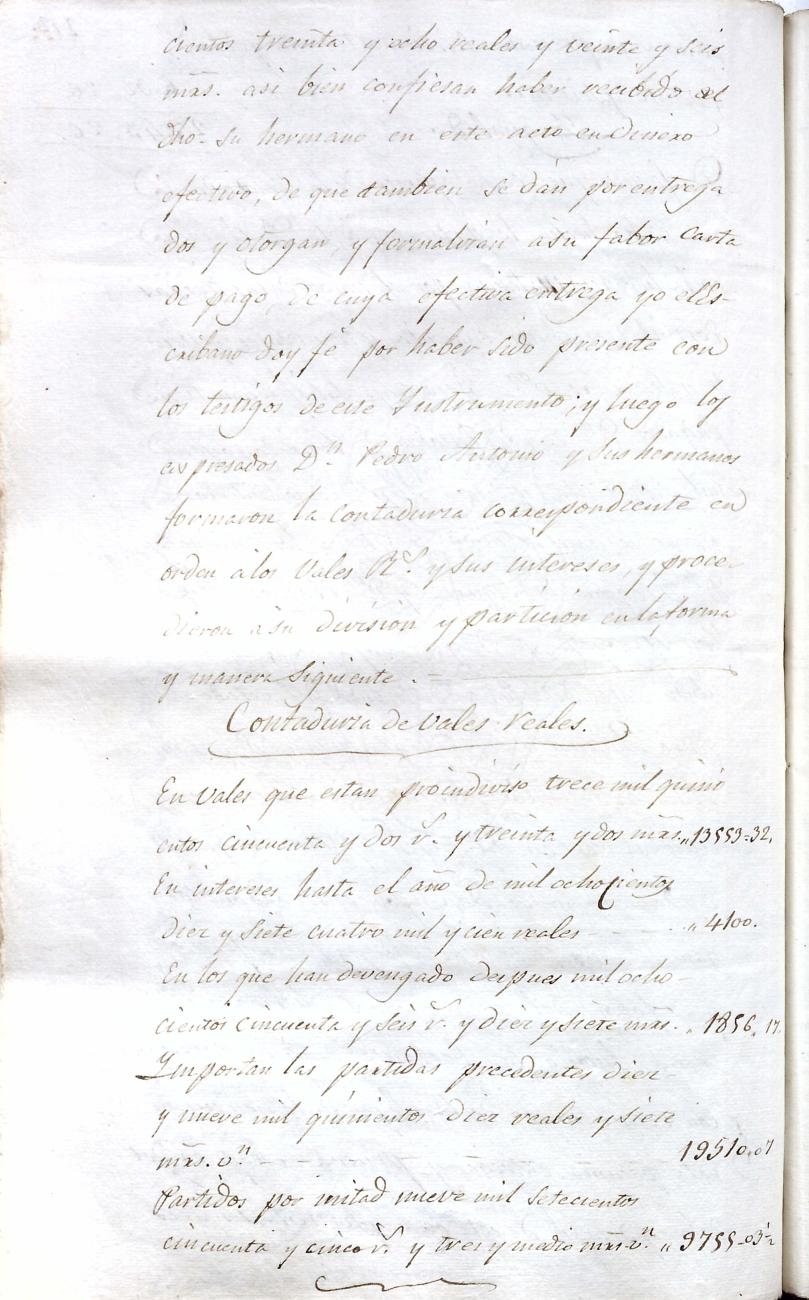 cientos treinta y ocho reales y veinte y seis
mrs. asi bien confiesan haber recibido del
dho. su hermano en este acto en dinero
efectivo, de que tambien se dan por entrega
dos y otorgan, y formalizan à su fabor Carta
de pago, de cuya efectiva entrega yo el Es-
cribano doy fé por haber sido presente con
los testigos de este Ynstrumento; y luego los
expresados Dn. Pedro Antonio y sus hermanos
formaron la contaduria correspondiente en
orden à los Vales Rs. y sus intereses, y proce-
dieron à su division y particion en la forma
y manera siguiente. =
Contaduria de Vales reales.
En Vales que estan proindiviso trece mil quini
entos cincuenta y dos rs. y treinta y dos mrs. „ 13553=32,
En intereses hasta el año de mil ochocientos
diez y siete cuatro mil y cien reales - - „ 4100.
En los que han devengado despues mil ocho-
cientos cincuenta y seis rs. y diez y siete mrs. „ 1856„ 17
Ymportan las partidas precedentes diez
y nueve mil quinientos diez reales y siete
mrs. vn. - - - 19510„07
Partidos por mitad nueve mil setecientos
cincuenta y cinco rs. y tres y medio mrs. vn. „ 9755-03½